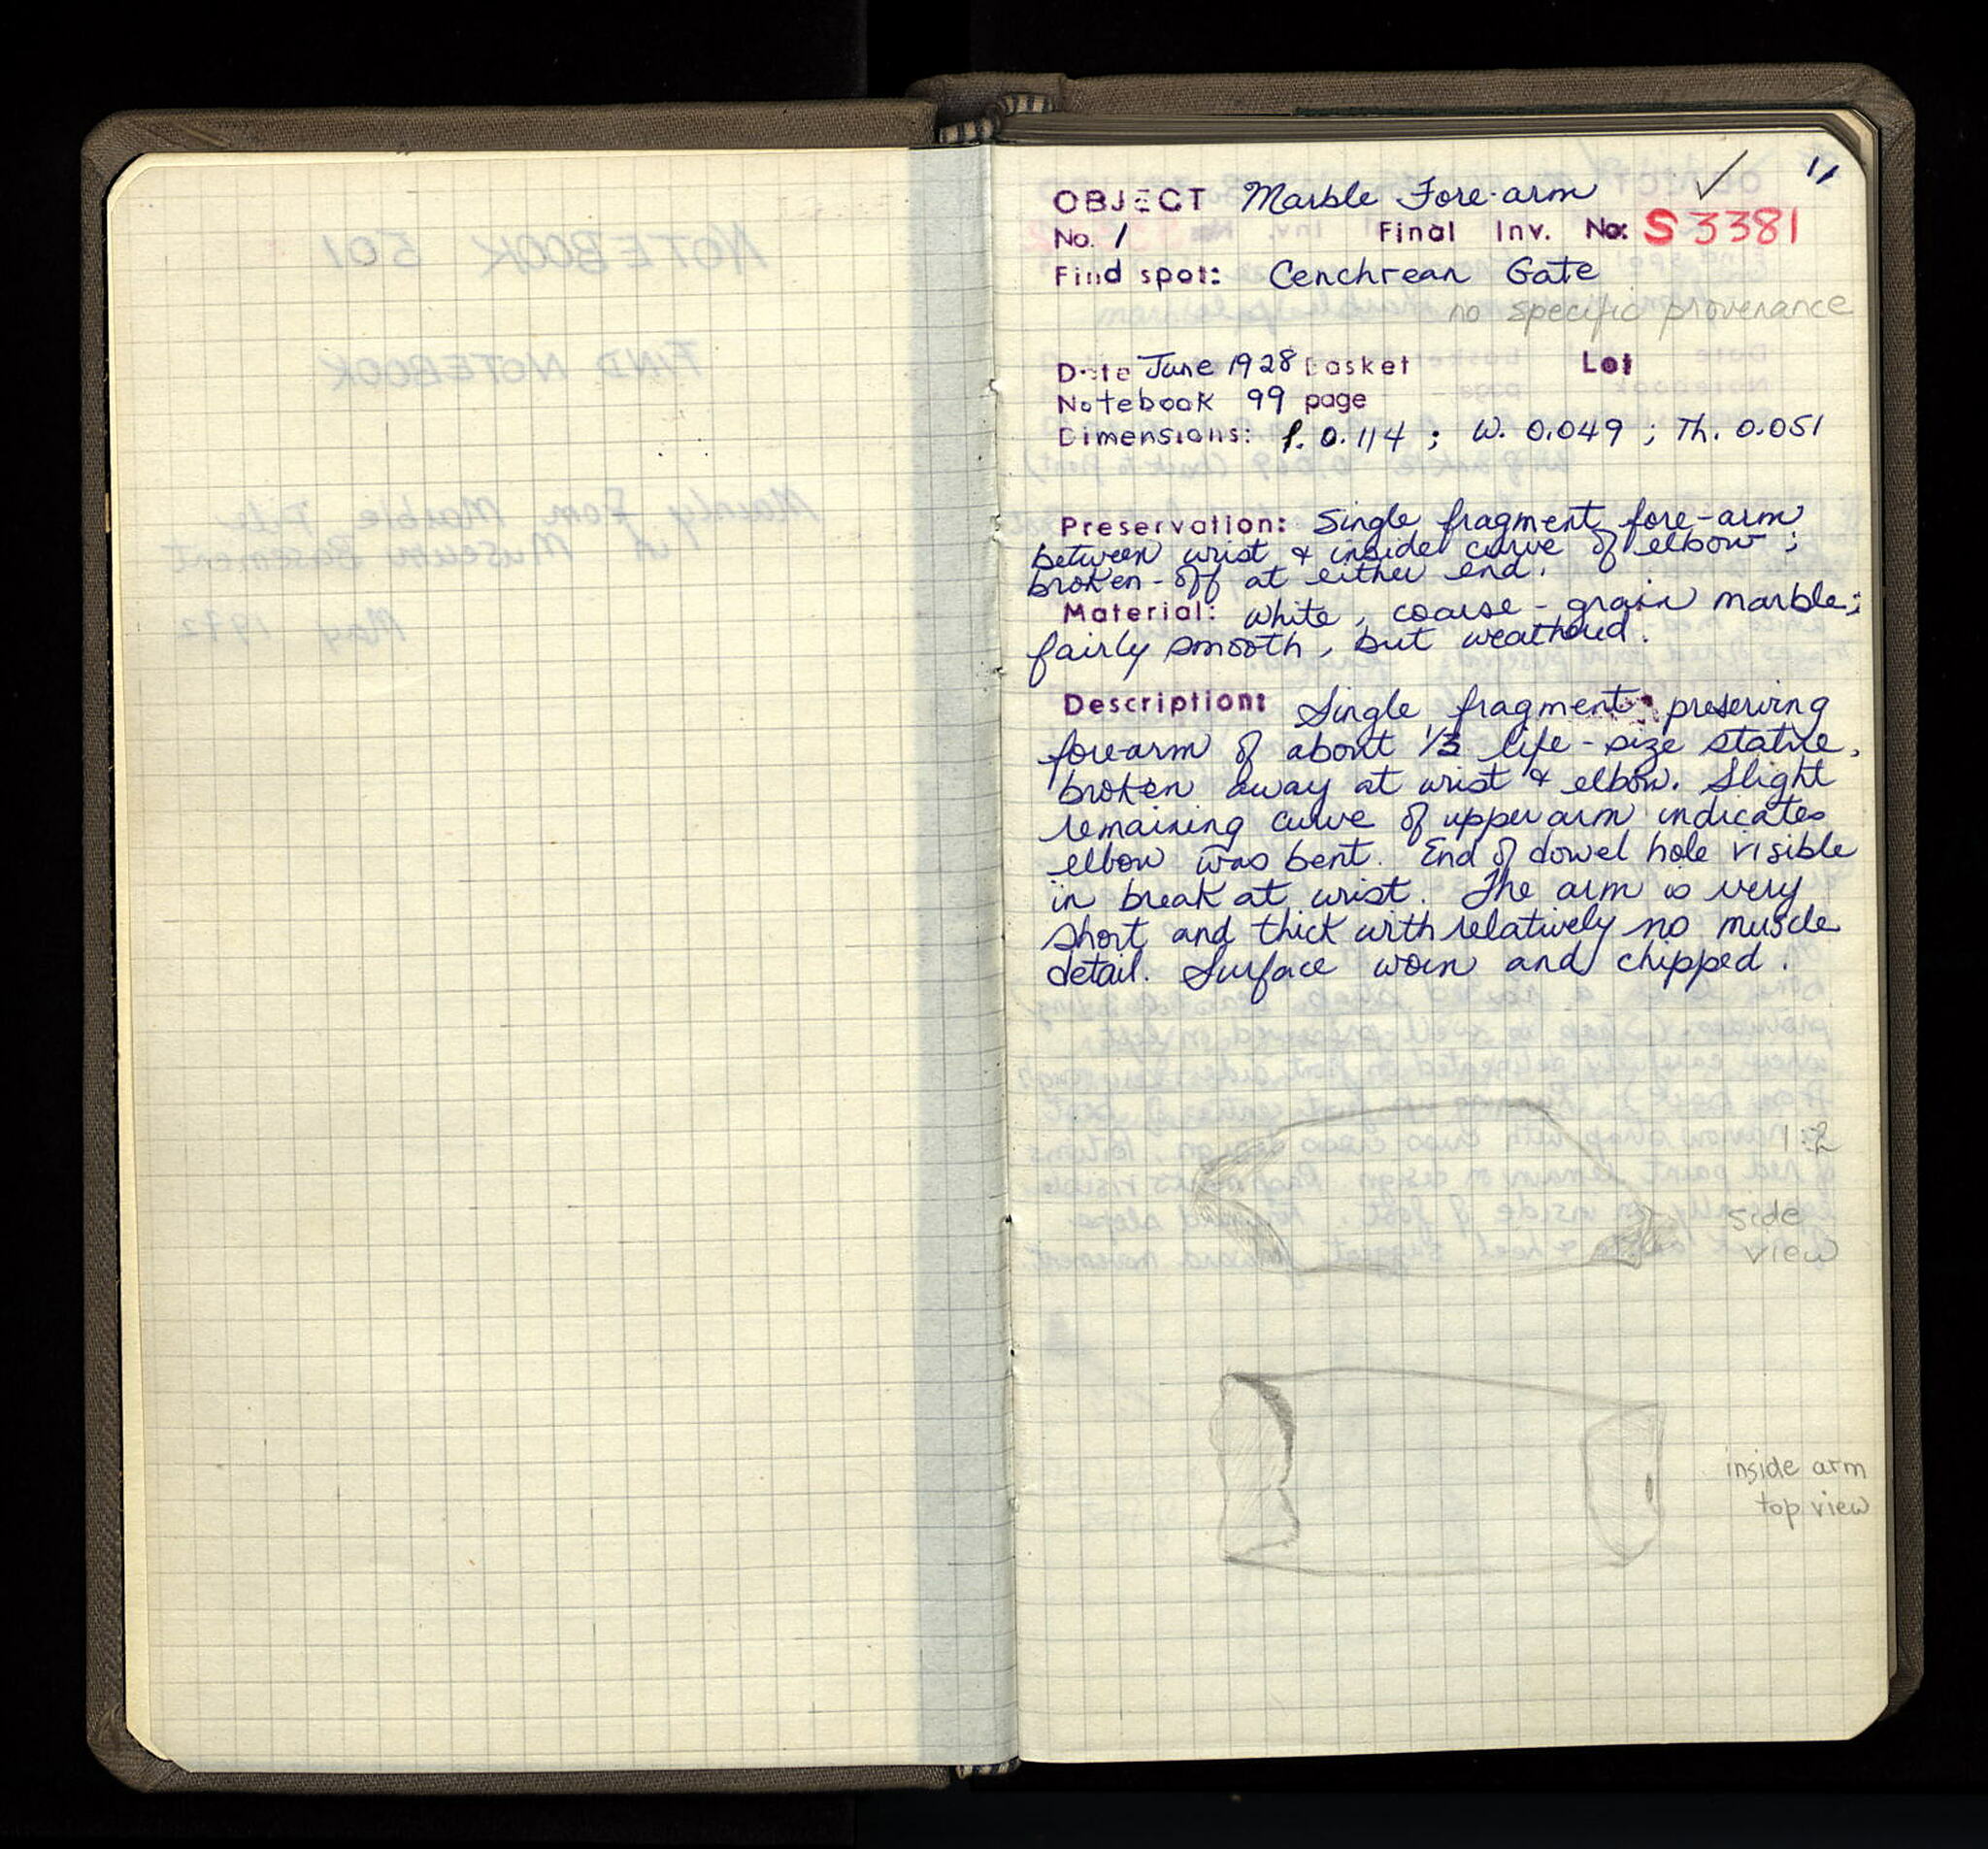 1,
OBJECT Marble Fore-arm ✓
No. 1 Final Inv. No: S 3381
Find spot: Cenchrean Gate
no specific provenance
Date June 1928 basket Lot
Notebook 99 page
Dimensions: l. 0.114 ; W. 0.049 ; Th. 0.051
Preservation: Single fragment, fore-arm
between wrist & inside curve of elbow ;
broken-off at either end.
Material: white, coarse-grain marble;
fairly smooth, but weathered.
Description: Single fragment preserving
fore-arm of about 1/3 life-size statue,
broken away at wrist & elbow. Slight
remaining curve of upper arm indicates
elbow was bent. End of dowel hole visible
in break at wrist. The arm is very
short and thick with relatively no muscle
detail. Surface worn and chipped.
1:2
side
view
inside arm
top view